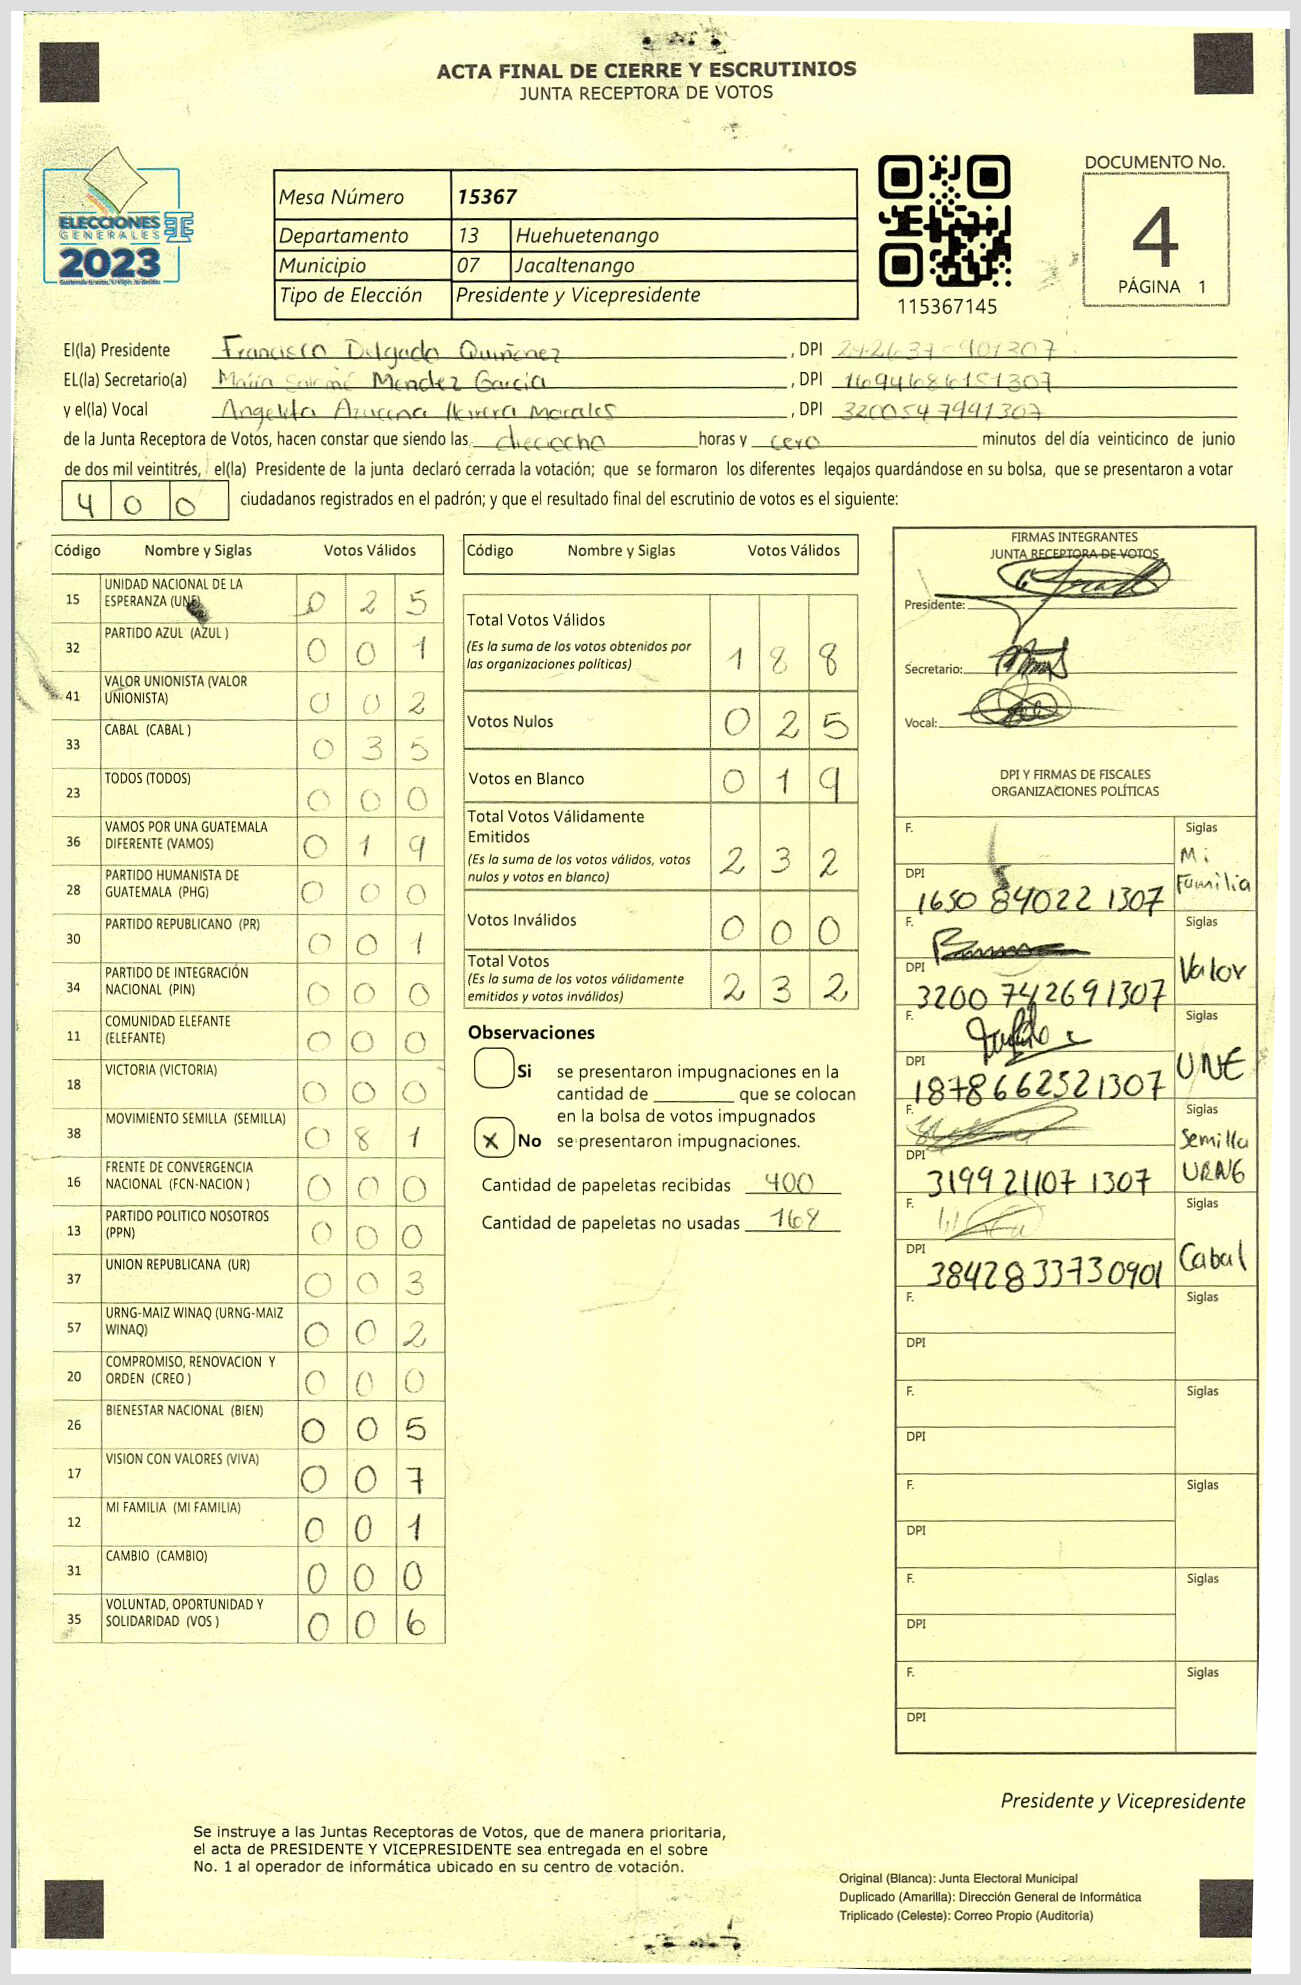 ACTA FINAL DE CIERRE Y ESCRUTINIOS
JUNTA RECEPTORA DE VOTOS
ELECCIONES
GENERALES
2023
Mesa Número 15367
Departamento 13 Huehuetenango
Municipio 07 Jacaltenango
Tipo de Elección Presidente y Vicepresidente
115367145
DOCUMENTO No.
4
PÁGINA 1
El(la) Presidente Francisco Delgado Quiñonez, DPI
EL(la) Secretario(a) María Salomé Méndez García, DPI 1694686151307
y el(la) Vocal Angelita Azucena Herrera Morales, DPI 3200547991307
de la Junta Receptora de Votos, hacen constar que siendo las dieciocho horas y cero minutos del día veinticinco de junio
de dos mil veintitrés, el(la) Presidente de la junta declaró cerrada la votación; que se formaron los diferentes legajos quardándose en su bolsa, que se presentaron a votar
400 ciudadanos registrados en el padrón; y que el resultado final del escrutinio de votos es el siguiente:
Código Nombre y Siglas Votos Válidos
15 UNIDAD NACIONAL DE LA ESPERANZA (UNE) 0 2 5
32 PARTIDO AZUL (AZUL ) 0 0 1
41 VALOR UNIONISTA (VALOR UNIONISTA) 0 0 2
33 CABAL (CABAL ) 0 3 5
23 TODOS (TODOS) 0 0 0
36 VAMOS POR UNA GUATEMALA DIFERENTE (VAMOS) 0 1 9
28 PARTIDO HUMANISTA DE GUATEMALA (PHG) 0 0 0
30 PARTIDO REPUBLICANO (PR) 0 0 1
34 PARTIDO DE INTEGRACIÓN NACIONAL (PIN) 0 0 0
11 COMUNIDAD ELEFANTE (ELEFANTE) 0 0 0
18 VICTORIA (VICTORIA) 0 0 0
38 MOVIMIENTO SEMILLA (SEMILLA) 0 8 1
16 FRENTE DE CONVERGENCIA NACIONAL (FCN-NACION ) 0 0 0
13 PARTIDO POLITICO NOSOTROS (PPN) 0 0 0
37 UNION REPUBLICANA (UR) 0 0 3
57 URNG-MAIZ WINAQ (URNG-MAIZ WINAQ) 0 0 2
20 COMPROMISO, RENOVACION Y ORDEN (CREO ) 0 0 0
26 BIENESTAR NACIONAL (BIEN) 0 0 5
17 VISION CON VALORES (VIVA) 0 0 7
12 MI FAMILIA (MI FAMILIA) 0 0 1
31 CAMBIO (CAMBIO) 0 0 0
35 VOLUNTAD, OPORTUNIDAD Y SOLIDARIDAD (VOS ) 0 0 6
Código Nombre y Siglas Votos Válidos
Total Votos Válidos 1 8 8
(Es la suma de los votos obtenidos por
las organizaciones politicas)
Votos Nulos 0 2 5
Votos en Blanco 0 1 9
Total Votos Válidamente
Emitidos 2 3 2
(Es la suma de los votos válidos, votos
nulos y votos en blanco)
Votos Inválidos 0 0 0
Total Votos 2 3 2
(Es la suma de los votos válidamente
emitidos y votos inválidos)
Observaciones
Si se presentaron impugnaciones en la
cantidad de ________ que se colocan
en la bolsa de votos impugnados
X No se presentaron impugnaciones.
Cantidad de papeletas recibidas 400
Cantidad de papeletas no usadas 168
FIRMAS INTEGRANTES
JUNTA RECEPTORA DE VOTOS
Presidente:
Secretario:
Vocal:
DPI Y FIRMAS DE FISCALES
ORGANIZACIONES POLÍTICAS
F. Siglas Mi Familia
DPI 1650 84022 1307
F. Siglas Valor
DPI 3200 742691307
F. Siglas UNE
DPI 1878662521307
F. Siglas Semilla URNG
DPI 3199 21107 1307
F. Siglas Cabal
DPI 3842833730901
F. Siglas
DPI
F. Siglas
DPI
F. Siglas
DPI
F. Siglas
DPI
F. Siglas
DPI
Presidente y Vicepresidente
Se instruye a las Juntas Receptoras de Votos, que de manera prioritaria,
el acta de PRESIDENTE Y VICEPRESIDENTE sea entregada en el sobre
No. 1 al operador de informática ubicado en su centro de votación.
Original (Blanca): Junta Electoral Municipal
Duplicado (Amarilla): Dirección General de Informática
Triplicado (Celeste): Correo Propio (Auditoria)